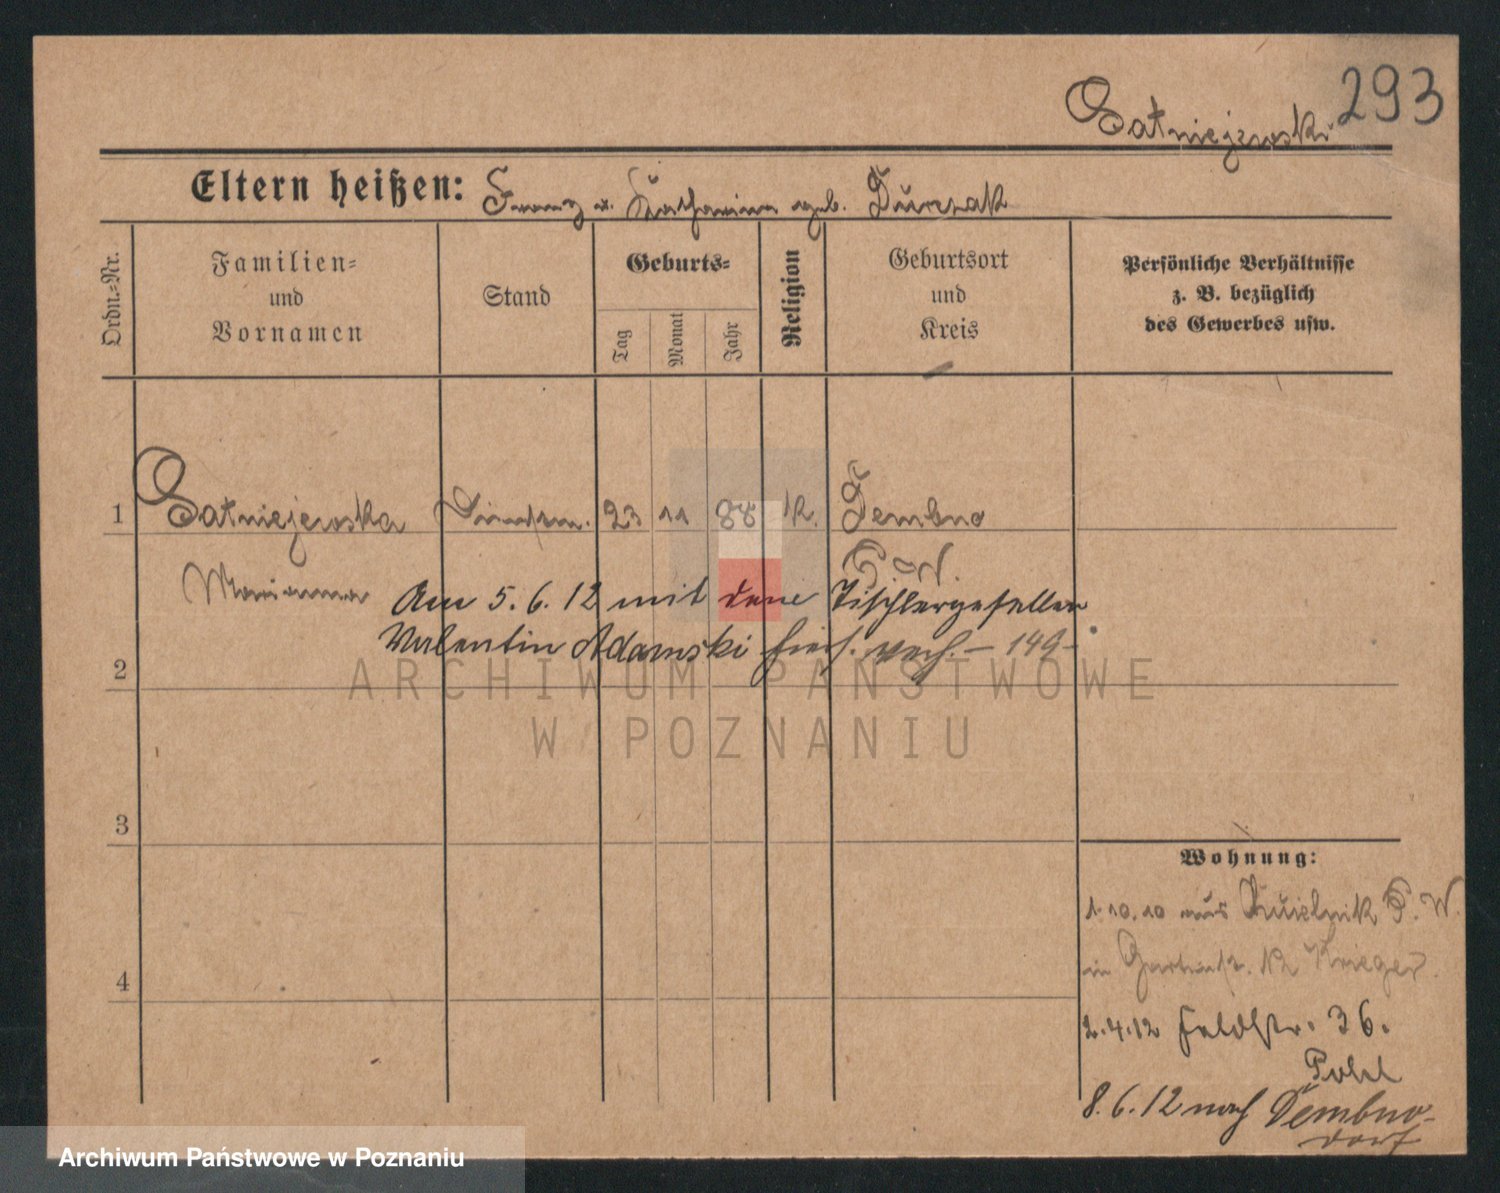 293
Satniejewski
Eltern heißen: Franz u. Katharina geb. Durzak
Ordn.=Nr.
Familien=
und
Vornamen
Stand
Geburts=
Tag
Monat
Jahr
Religion
Geburtsort
und
Kreis
Persönliche Verhältnisse
z. B. bezüglich
des Gewerbes usw.
1 Satniejewska Dienstm. 23 11 88 k. Dembno
Marianna
Am 5. 6. 12 mit dem Tischlergesellen
Valentin Adamski hies. verh. – 149 –
2
3
4
Wohnung:
1.10.10 aus P. W.
in Gartenstr. 12 Krieger.
2.4.12 Feldstr. 36.
Pohl
8. 6. 12 nach Dembno-
dorf
ARCHIWUM PAŃSTWOWE
W POZNANIU
Archiwum Państwowe w Poznaniu